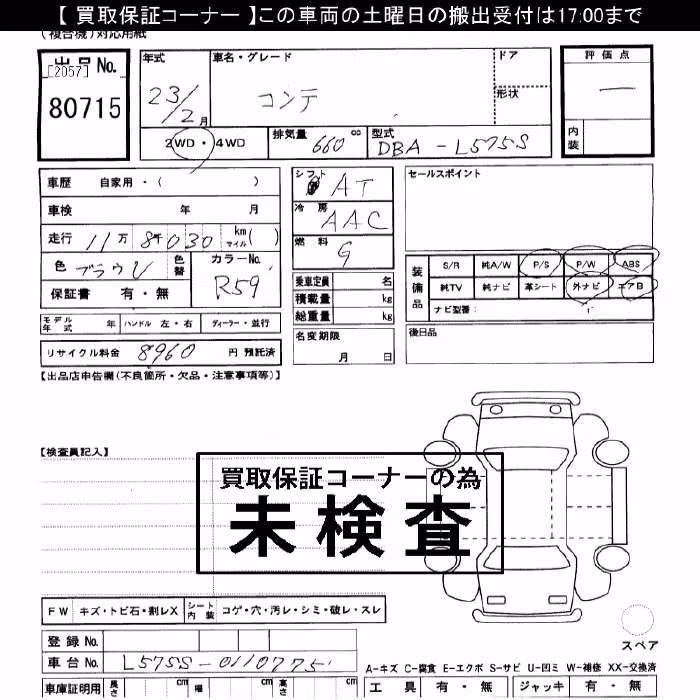 【 買取保証コーナー 】この車両の土曜日の搬出受付は17:00まで
(複合機)対応用紙
出品No.
[2057]
80715
年式 車名・グレード ドア
23/2月 コンテ 形状
2WD・4WD 排気量 660 cc 型式 DBA-L575S
評価点
一
内装
車歴 自家用・( )
車検 年 月
走行 11万 8千030 km マイル( )
色 ブラウン 色替 カラーNo. R59
保証書 有・無
モデル年式 年 ハンドル 左・右 ディーラー・並行
リサイクル料金 8960 円 預託済
シフト AT
冷房 AAC
燃料 G
乗車定員 名
積載量 kg
総重量 kg
名変期限
月 日
セールスポイント
装備品
S/R 純A/W P/S P/W ABS
純TV 純ナビ 革シート 外ナビ エアB
ナビ型番:
後日品
【出品店申告欄(不良箇所・欠品・注意事項等)】
【検査員記入】
買取保証コーナーの為
未検査
FW キズ・トビ石・割レX シート内装 コゲ・穴・汚レ・シミ・破レ・スレ
登録No.
車台No. L575S-0110775
車庫証明用 長さ cm 幅 cm 高さ cm
スペア
A-キズ C-腐食 E-エクボ S-サビ U-凹ミ W-補修 XX-交換済
工具 有・無 ジャッキ 有・無